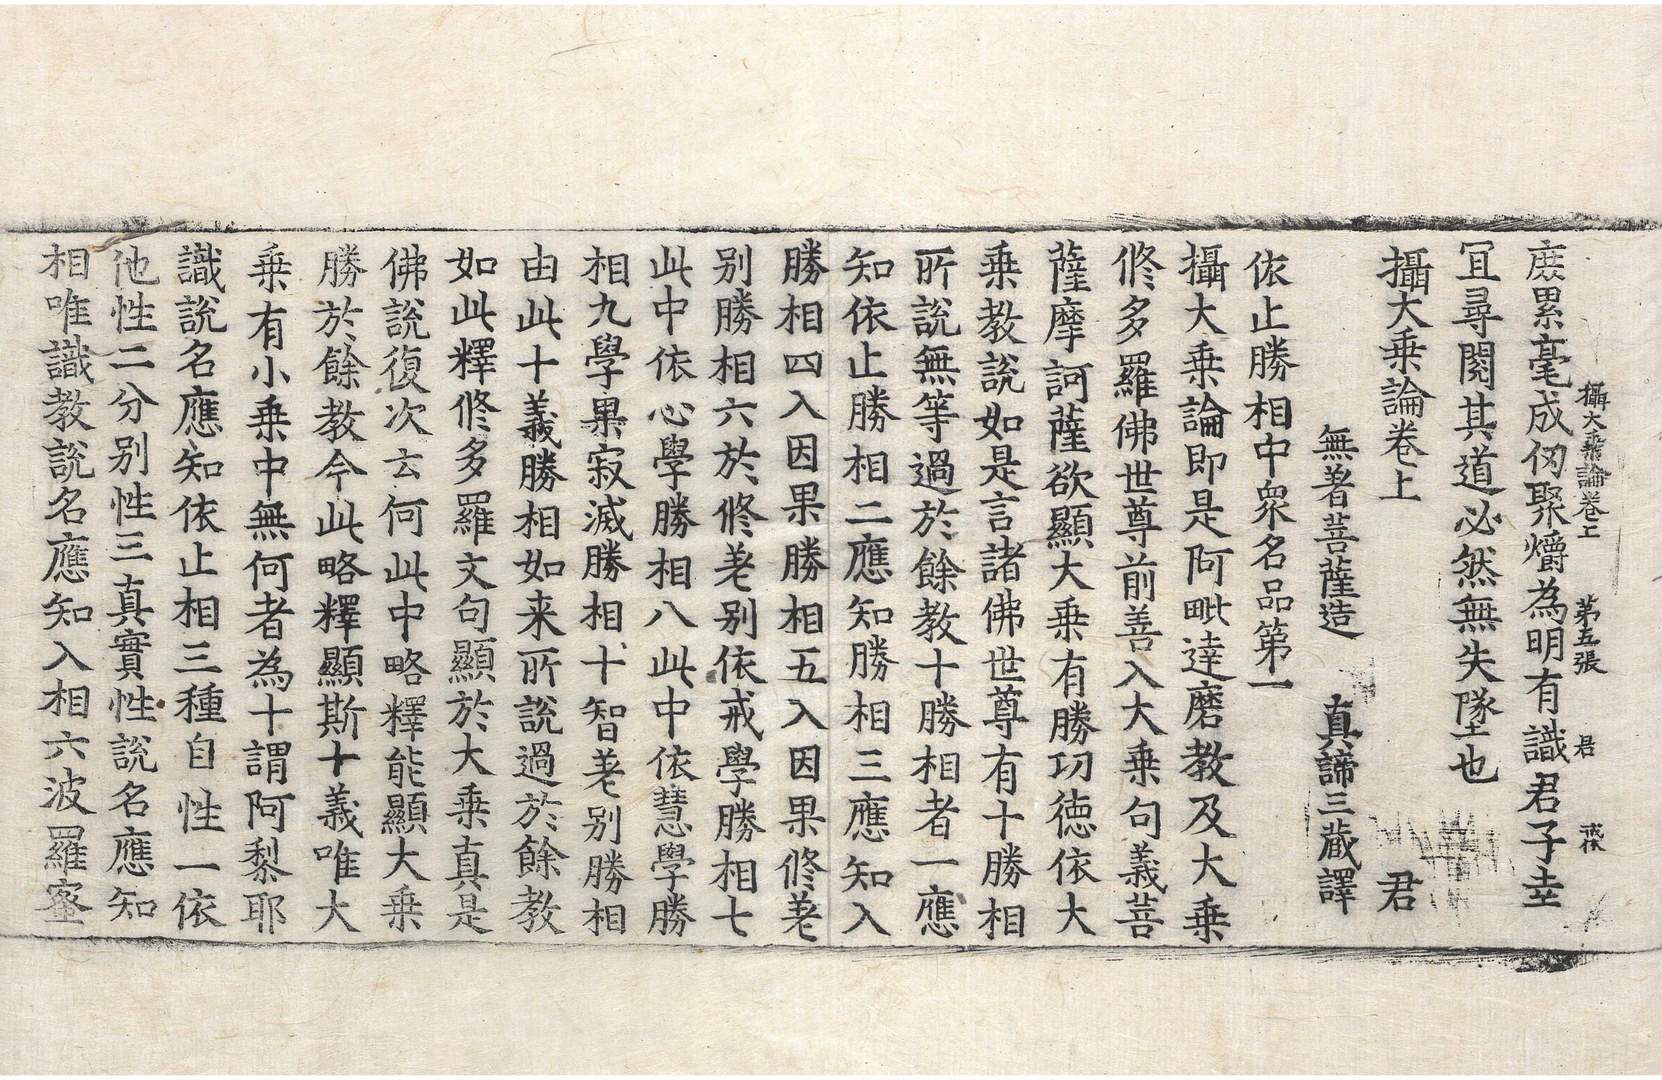 攝大乗論卷上 第五張 君
庶累毫成仞聚爝為明有識君子幸
冝尋閱其道必然無失墜也
攝大乗論卷上 君
無著菩薩造 真諦三藏譯
依止勝相中衆名品第一
攝大乗論即是阿毗達磨教及大乗
修多羅佛世尊前善入大乗句義菩
薩摩訶薩欲顯大乗有勝㓛德依大
乗教說如是言諸佛世尊有十勝相
所說無等過於餘教十勝相者一應
知依止勝相二應知勝相三應知入
勝相四入因果勝相五入因果修差
别勝相六於修差别依戒學勝相七
此中依心學勝相八此中依慧學勝
相九學果寂滅勝相十智差别勝相
由此十義勝相如来所說過於餘教
如此釋修多羅文句顯於大乗真是
佛說復次云何此中略釋能顯大乗
勝於餘教今此略釋顯斯十義唯大
乗有小乗中無何者為十謂阿黎耶
識說名應知依止相三種自性一依
他性二分别性三真實性說名應知
相唯識教說名應知入相六波羅蜜